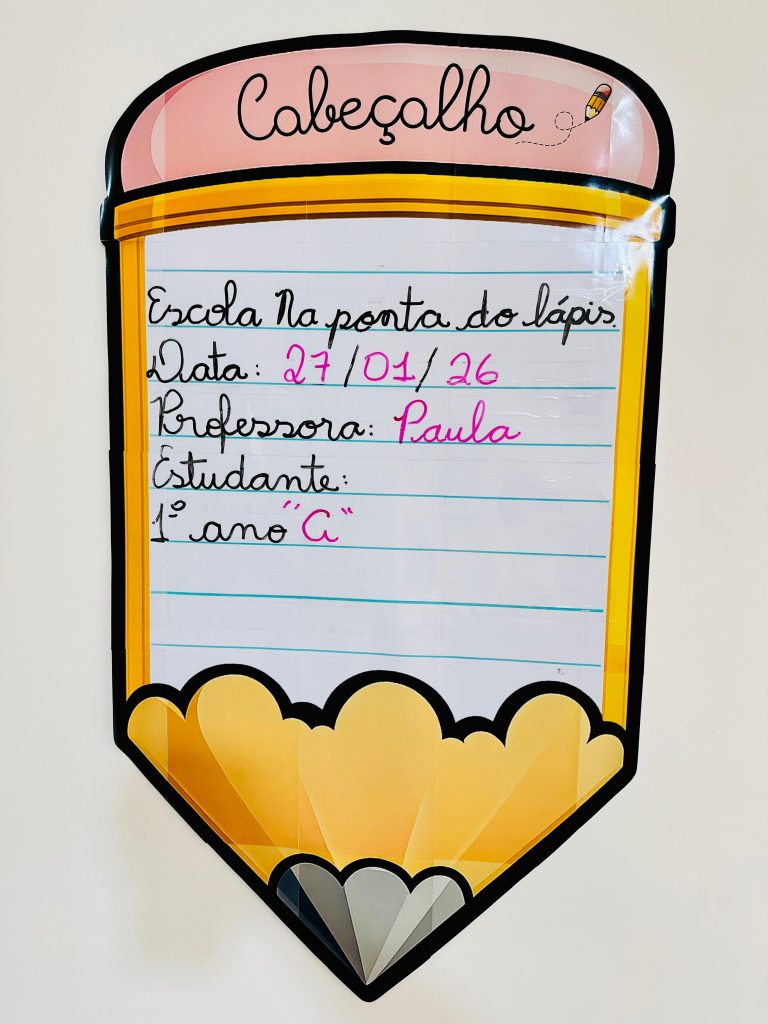 Cabeçalho
Escola Na ponta do lápis.
Data: 27/01/26
Professora: Paula
Estudante:
1º ano "A"